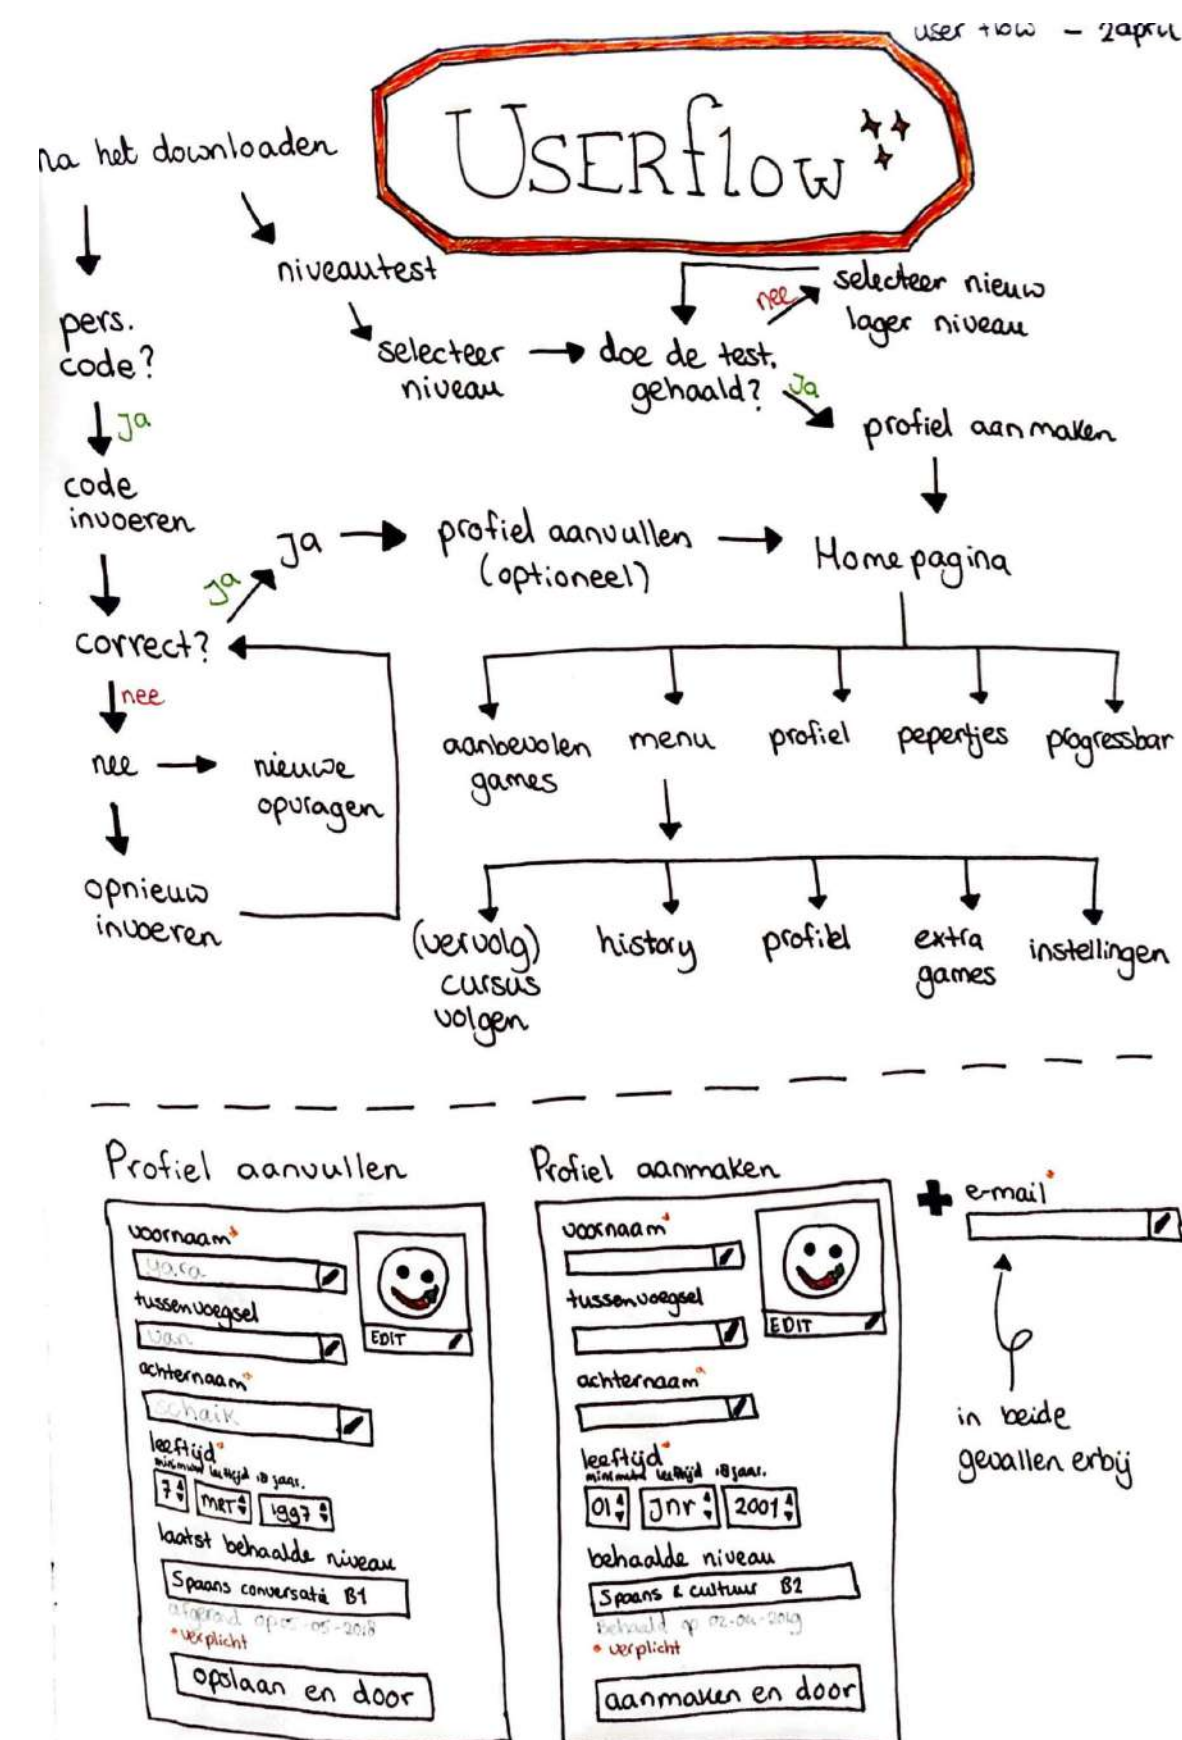 user flow - 2 april
USERflow
na het downloaden
niveautest
pers.
code?
selecteer
niveau
doe de test.
gehaald?
nee
selecteer nieuw
lager niveau
Ja
profiel aanmaken
Ja
code
invoeren
Ja
Ja
profiel aanvullen
(optioneel)
Homepagina
correct?
nee
nee
nieuwe
opvragen
opnieuw
invoeren
aanbevolen
games
menu
profiel
pepertjes
progressbar
(vervolg)
cursus
volgen
history
profiel
extra
games
instellingen
Profiel aanvullen
voornaam*
yara
tussenvoegsel
van
achternaam*
schaik
EDIT
leeftijd*
minimum leeftijd 18 jaar.
7 MRT 1997
laatst behaalde niveau
Spaans conversatie B1
afgerond op 05-05-2018
*verplicht
opslaan en door
Profiel aanmaken
voornaam*
tussenvoegsel
achternaam*
EDIT
leeftijd*
minimum leeftijd 18 jaar.
01 Jnr 2001
behaalde niveau
Spaans & cultuur B2
Behaald op 02-04-2019
* verplicht
aanmaken en door
+ e-mail*
in beide
gevallen erbij